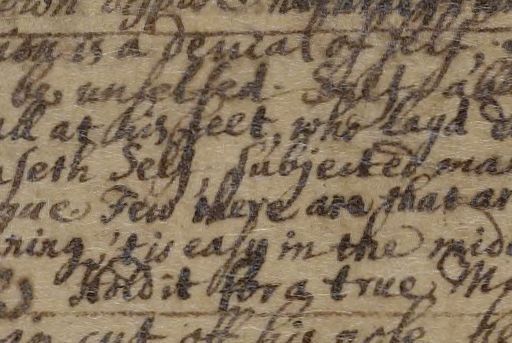 ion is a denial of self,
be unselfed. Self all
all at his feet, who layd d
aseth Self, subjected ma
gue. Few there are that ar
ning, 't is easy in the midd
Hold it for a true M
an cut off his nose he